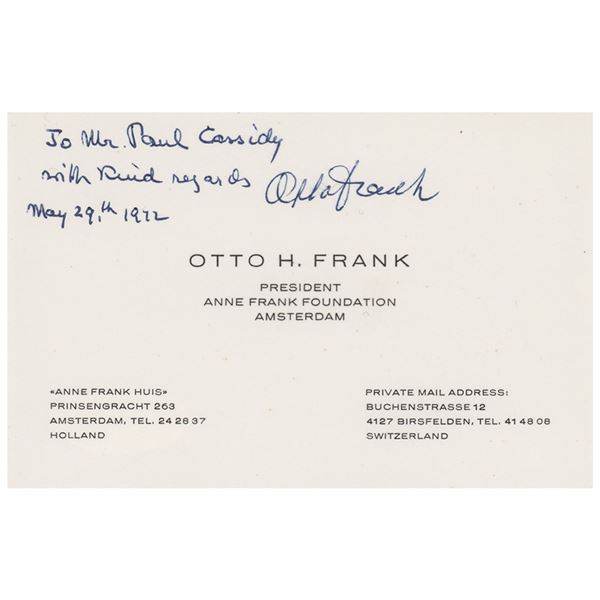 To Mr. Paul Cassidy
with kind regards Otto Frank
May 29.th 1972
OTTO H. FRANK
PRESIDENT
ANNE FRANK FOUNDATION
AMSTERDAM
«ANNE FRANK HUIS»
PRINSENGRACHT 263
AMSTERDAM, TEL. 24 28 37
HOLLAND
PRIVATE MAIL ADDRESS:
BUCHENSTRASSE 12
4127 BIRSFELDEN, TEL. 41 48 08
SWITZERLAND